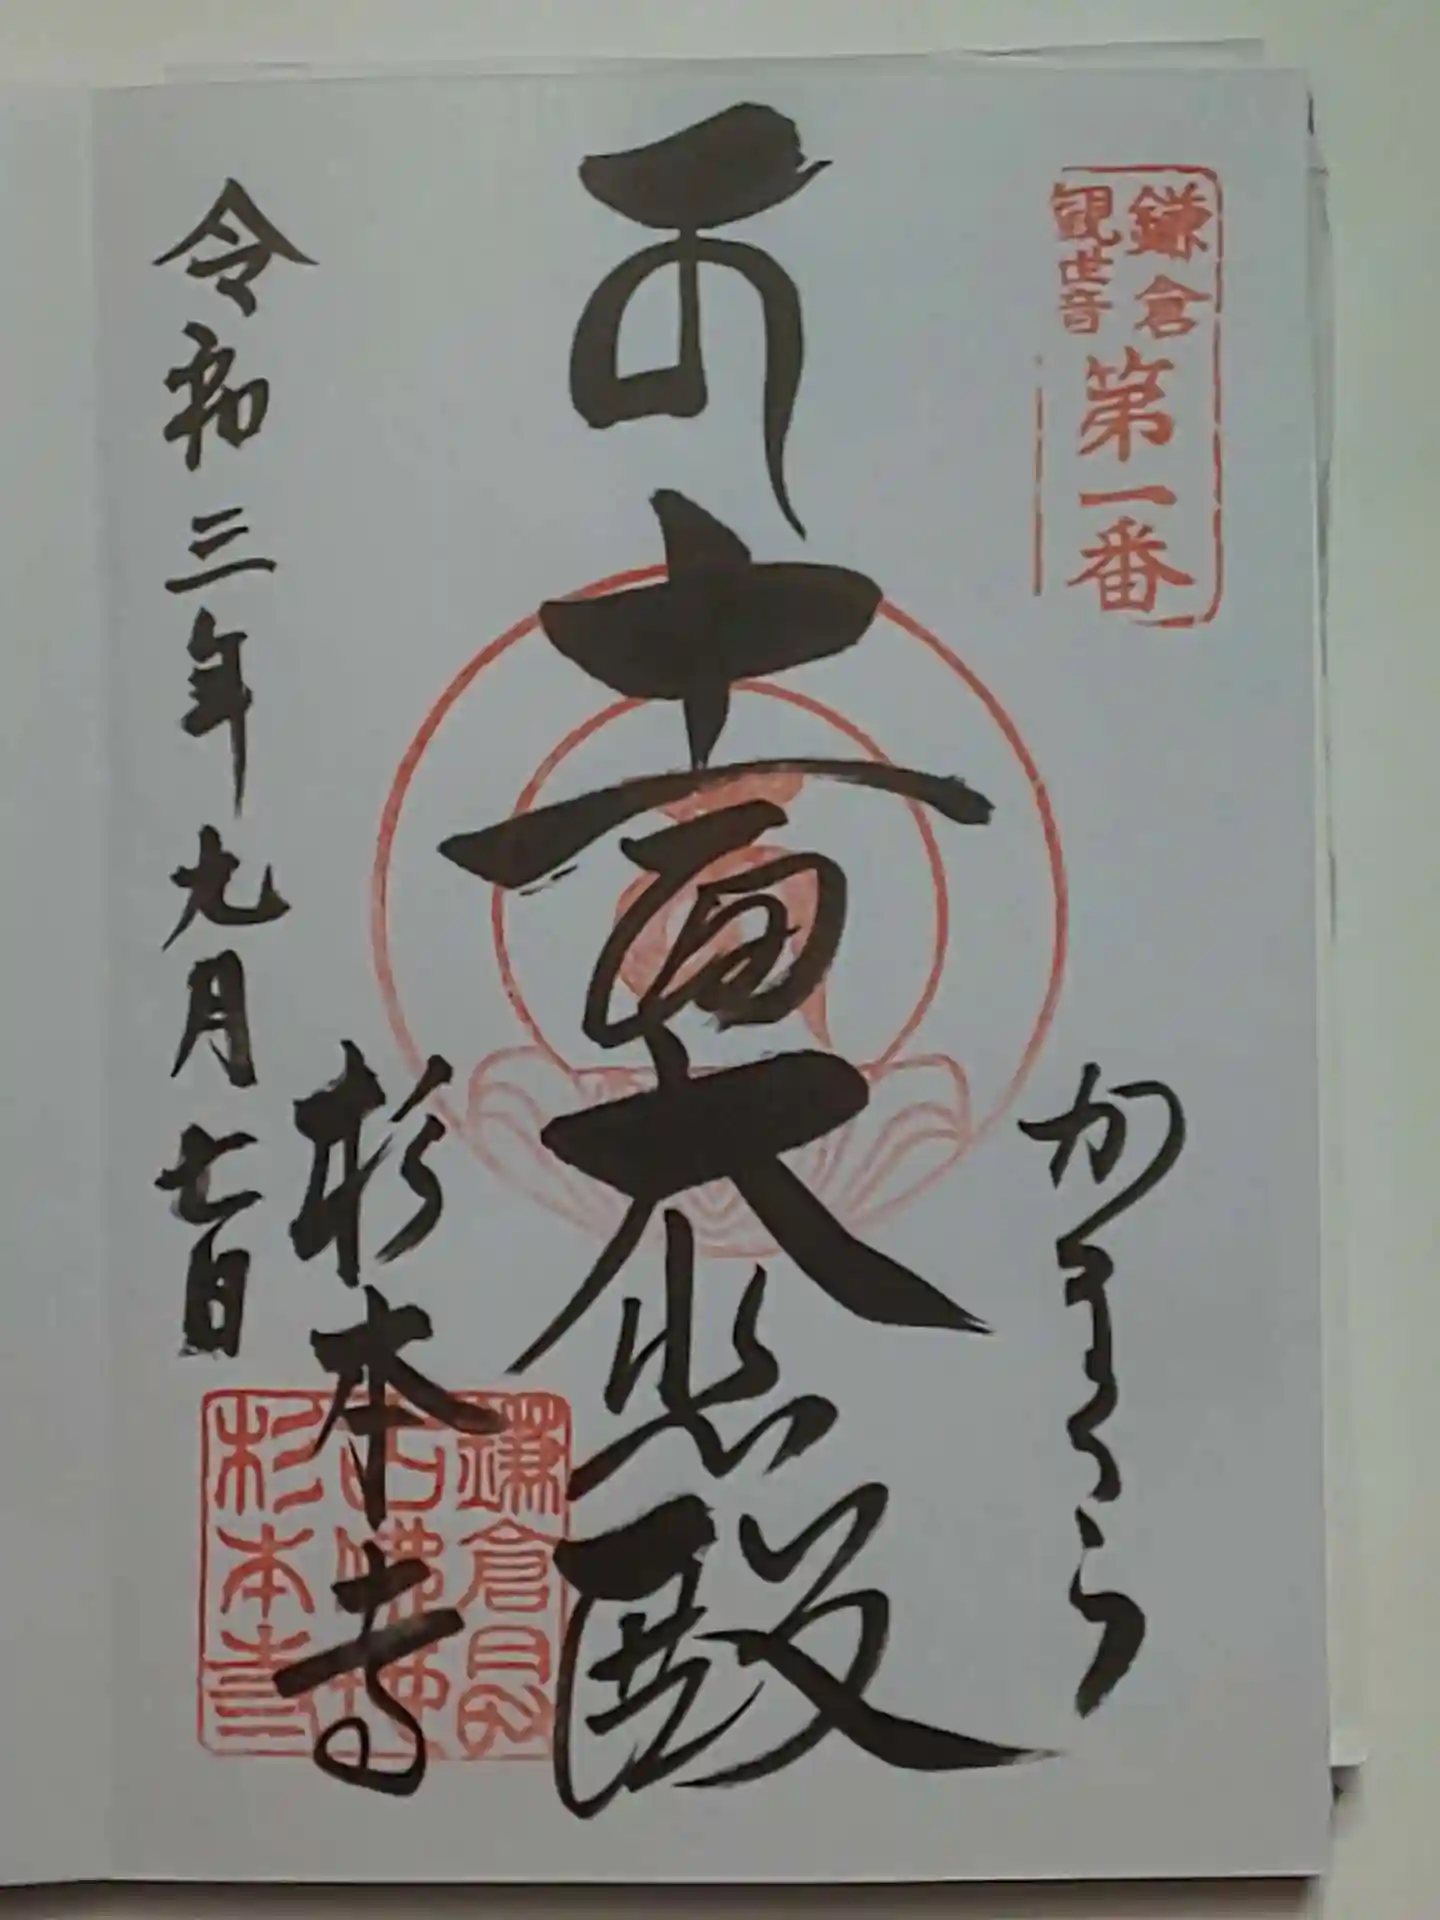 鎌倉
観世音
第一番
かまくら
十一面大悲殿
杉本寺
令和三年九月七日
鎌倉
杉本寺